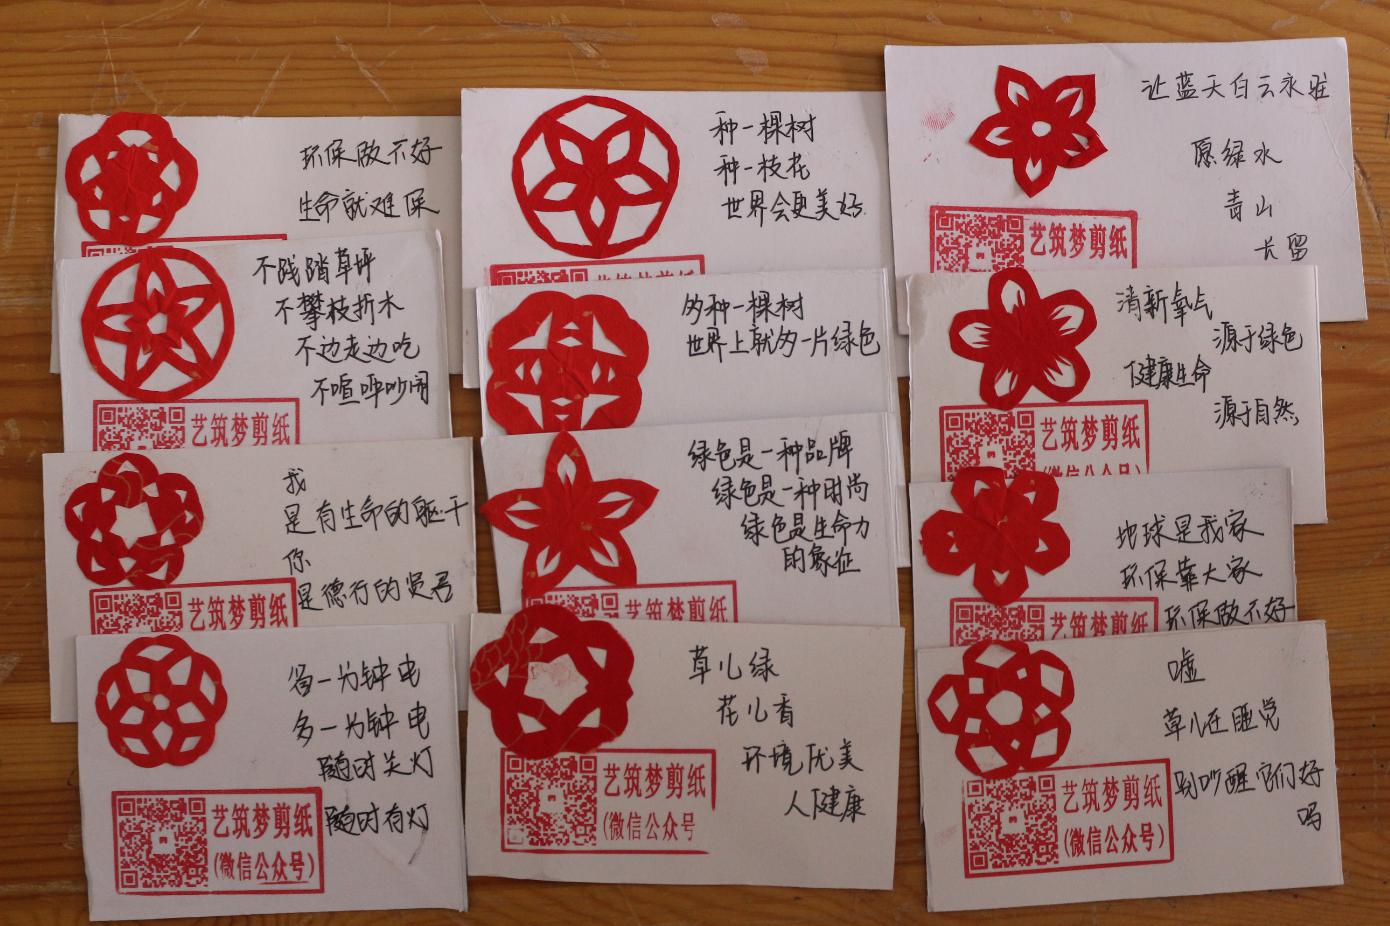 环保做不好
生命就难保
不践踏草坪
不攀枝折木
不边走边吃
不喧呼吵闹
艺筑梦剪纸
我
是有生命的躯干
你
是德行的贤君
艺筑梦剪纸
省一分钟电
多一分钟电
随时关灯
随时有灯
艺筑梦剪纸
(微信公众号)
种一棵树
种一枝花
世界会更美好
艺筑梦剪纸
多种一棵树
世界上就多一片绿色
绿色是一种品牌
绿色是一种时尚
绿色是生命力
的象征
艺筑梦剪纸
草儿绿
花儿香
环境优美
人健康
艺筑梦剪纸
(微信公众号
让蓝天白云永驻
愿绿水
青山
长留
艺筑梦剪纸
清新氧气
源于绿色
健康生命
源于自然
艺筑梦剪纸
(微信公众号)
地球是我家
环保靠大家
环保做不好
艺筑梦剪纸
嘘
草儿在睡觉
别吵醒它们好
吗
艺筑梦剪纸
(微信公众号)